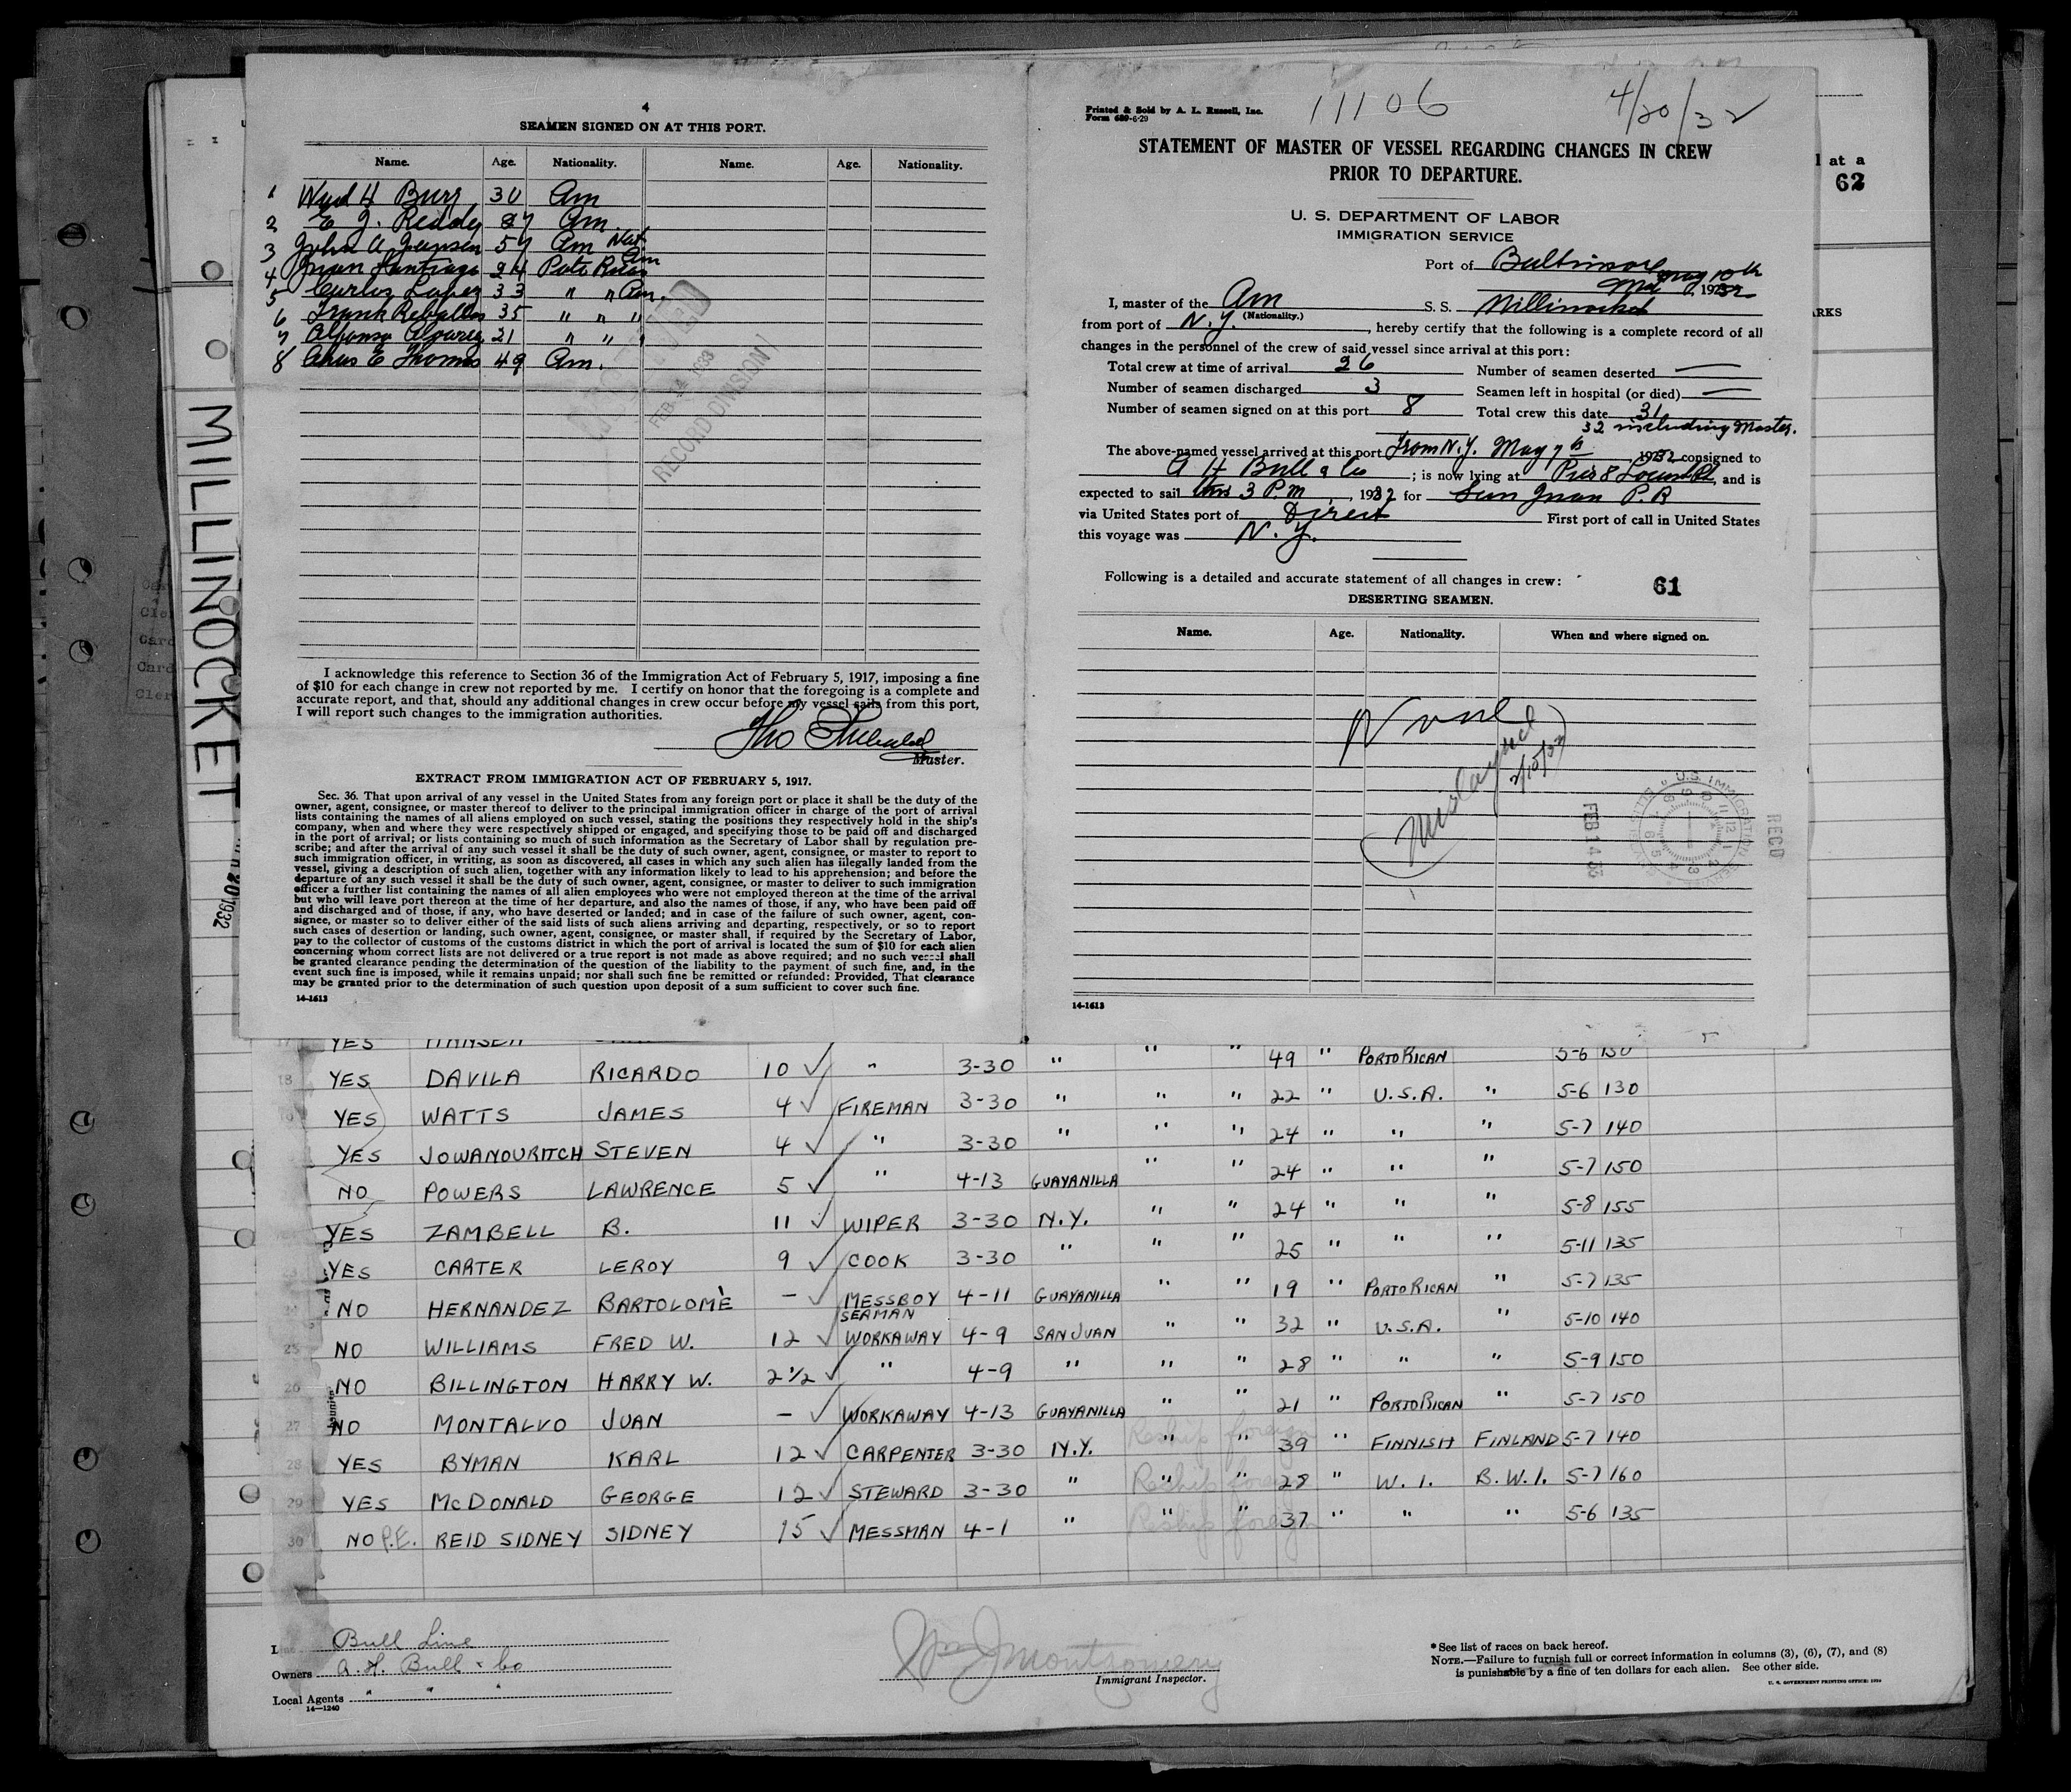 4
SEAMEN SIGNED ON AT THIS PORT.
Name. Age. Nationality. Name. Age. Nationality.
1 H Burr 30 Am
2 E J. Reddy Am.
3 John A Jansen 57 Am Nat
4 Juan Santiago 24 Porto Rican Am
5 Carlos Lopez 33 " " Am.
6 Frank 35 " " "
7 Alfonso 21 " " "
8 Chas E Thomas 49 Am.
FEB 1933
RECORD DIVISION
I acknowledge this reference to Section 36 of the Immigration Act of February 5, 1917, imposing a fine
of $10 for each change in crew not reported by me. I certify on honor that the foregoing is a complete and
accurate report, and that, should any additional changes in crew occur before my vessel sails from this port,
I will report such changes to the immigration authorities.
Master.
EXTRACT FROM IMMIGRATION ACT OF FEBRUARY 5, 1917.
Sec. 36. That upon arrival of any vessel in the United States from any foreign port or place it shall be the duty of the
owner, agent, consignee, or master thereof to deliver to the principal immigration officer in charge of the port of arrival
lists containing the names of all aliens employed on such vessel, stating the positions they respectively hold in the ship's
company, when and where they were respectively shipped or engaged, and specifying those to be paid off and discharged
in the port of arrival; or lists containing so much of such information as the Secretary of Labor shall by regulation pre-
scribe; and after the arrival of any such vessel it shall be the duty of such owner, agent, consignee, or master to report to
such immigration officer, in writing, as soon as discovered, all cases in which any such alien has illegally landed from the
vessel, giving a description of such alien, together with any information likely to lead to his apprehension; and before the
departure of any such vessel it shall be the duty of such owner, agent, consignee, or master to deliver to such immigration
officer a further list containing the names of all alien employees who were not employed thereon at the time of the arrival
but who will leave port thereon at the time of her departure, and also the names of those, if any, who have been paid off
and discharged and of those, if any, who have deserted or landed; and in case of the failure of such owner, agent, con-
signee, or master so to deliver either of the said lists of such aliens arriving and departing, respectively, or so to report
such cases of desertion or landing, such owner, agent, consignee, or master shall, if required by the Secretary of Labor,
pay to the collector of customs of the customs district in which the port of arrival is located the sum of $10 for each alien
concerning whom correct lists are not delivered or a true report is not made as above required; and no such vessel shall
be granted clearance pending the determination of the question of the liability to the payment of such fine, and, in the
event such fine is imposed, while it remains unpaid; nor shall such fine be remitted or refunded: Provided, That clearance
may be granted prior to the determination of such question upon deposit of a sum sufficient to cover such fine.
14-1613
Printed & Sold by A. L. Russell, Inc.
Form 689-6-29
11106
4/20/32
STATEMENT OF MASTER OF VESSEL REGARDING CHANGES IN CREW
PRIOR TO DEPARTURE.
U. S. DEPARTMENT OF LABOR
IMMIGRATION SERVICE
Port of Baltimore
May 10th, 1932
I, master of the Am S. S. Millinocket
(Nationality.)
from port of N. Y., hereby certify that the following is a complete record of all
changes in the personnel of the crew of said vessel since arrival at this port:
Total crew at time of arrival 26 Number of seamen deserted —
Number of seamen discharged 3 Seamen left in hospital (or died) —
Number of seamen signed on at this port 8 Total crew this date 31
32 including Master.
The above-named vessel arrived at this port from N.Y. May 7th 1932 consigned to
A H Bull & Co; is now lying at Pier 8 Locust Pt, and is
expected to sail 3 P.M, 1932 for San Juan P.R
via United States port of Direct First port of call in United States
this voyage was N. Y.
Following is a detailed and accurate statement of all changes in crew:
61
DESERTING SEAMEN.
Name. Age. Nationality. When and where signed on.
None
U.S. IMMIGRATION
RECD
FEB 14 33
14-1613
l at a
62
RKS
MILLINOCKET
20 1932
YES HANSEN 5-6 150
18 YES DAVILA RICARDO 10 ✓ " 3-30 " " " 49 " PORTO RICAN
YES WATTS JAMES 4 ✓ FIREMAN 3-30 " " " 22 " U.S.A. " 5-6 130
YES JOWANOURITCH STEVEN 4 ✓ " 3-30 " " " 24 " " " 5-7 140
NO POWERS LAWRENCE 5 ✓ " 4-13 GUAYANILLA " " 24 " " " 5-7 150
YES ZAMBELL B. 11 ✓ WIPER 3-30 N.Y. " " 24 " " " 5-8 155
23 YES CARTER LEROY 9 ✓ COOK 3-30 " " " 25 " " " 5-11 135
24 NO HERNANDEZ BARTOLOMÈ — ✓ MESSBOY 4-11 GUAYANILLA " " 19 " PORTO RICAN " 5-7 135
25 NO WILLIAMS FRED W. 12 ✓ SEAMAN WORKAWAY 4-9 SAN JUAN " " 32 " U.S.A. " 5-10 140
26 NO BILLINGTON HARRY W. 2 1/2 ✓ " 4-9 " " " 28 " " " 5-9 150
27 NO MONTALVO JUAN — ✓ WORKAWAY 4-13 GUAYANILLA " " 21 " PORTO RICAN " 5-7 150
28 YES BYMAN KARL 12 ✓ CARPENTER 3-30 N.Y. Reship foreign " " 39 " FINNISH FINLAND 5-7 140
29 YES McDONALD GEORGE 12 ✓ STEWARD 3-30 " Reship foreign " " 28 " W. I. B.W.I. 5-7 160
30 NO P.E. REID SIDNEY SIDNEY 15 ✓ MESSMAN 4-1 " Reship foreign " " 37 " " " 5-6 135
Line Bull Line
Owners A. H. Bull & Co
Local Agents " " "
14—1240
Wm J Montgomery
Immigrant Inspector.
* See list of races on back hereof.
NOTE.—Failure to furnish full or correct information in columns (3), (6), (7), and (8)
is punishable by a fine of ten dollars for each alien. See other side.
U. S. GOVERNMENT PRINTING OFFICE: 1929